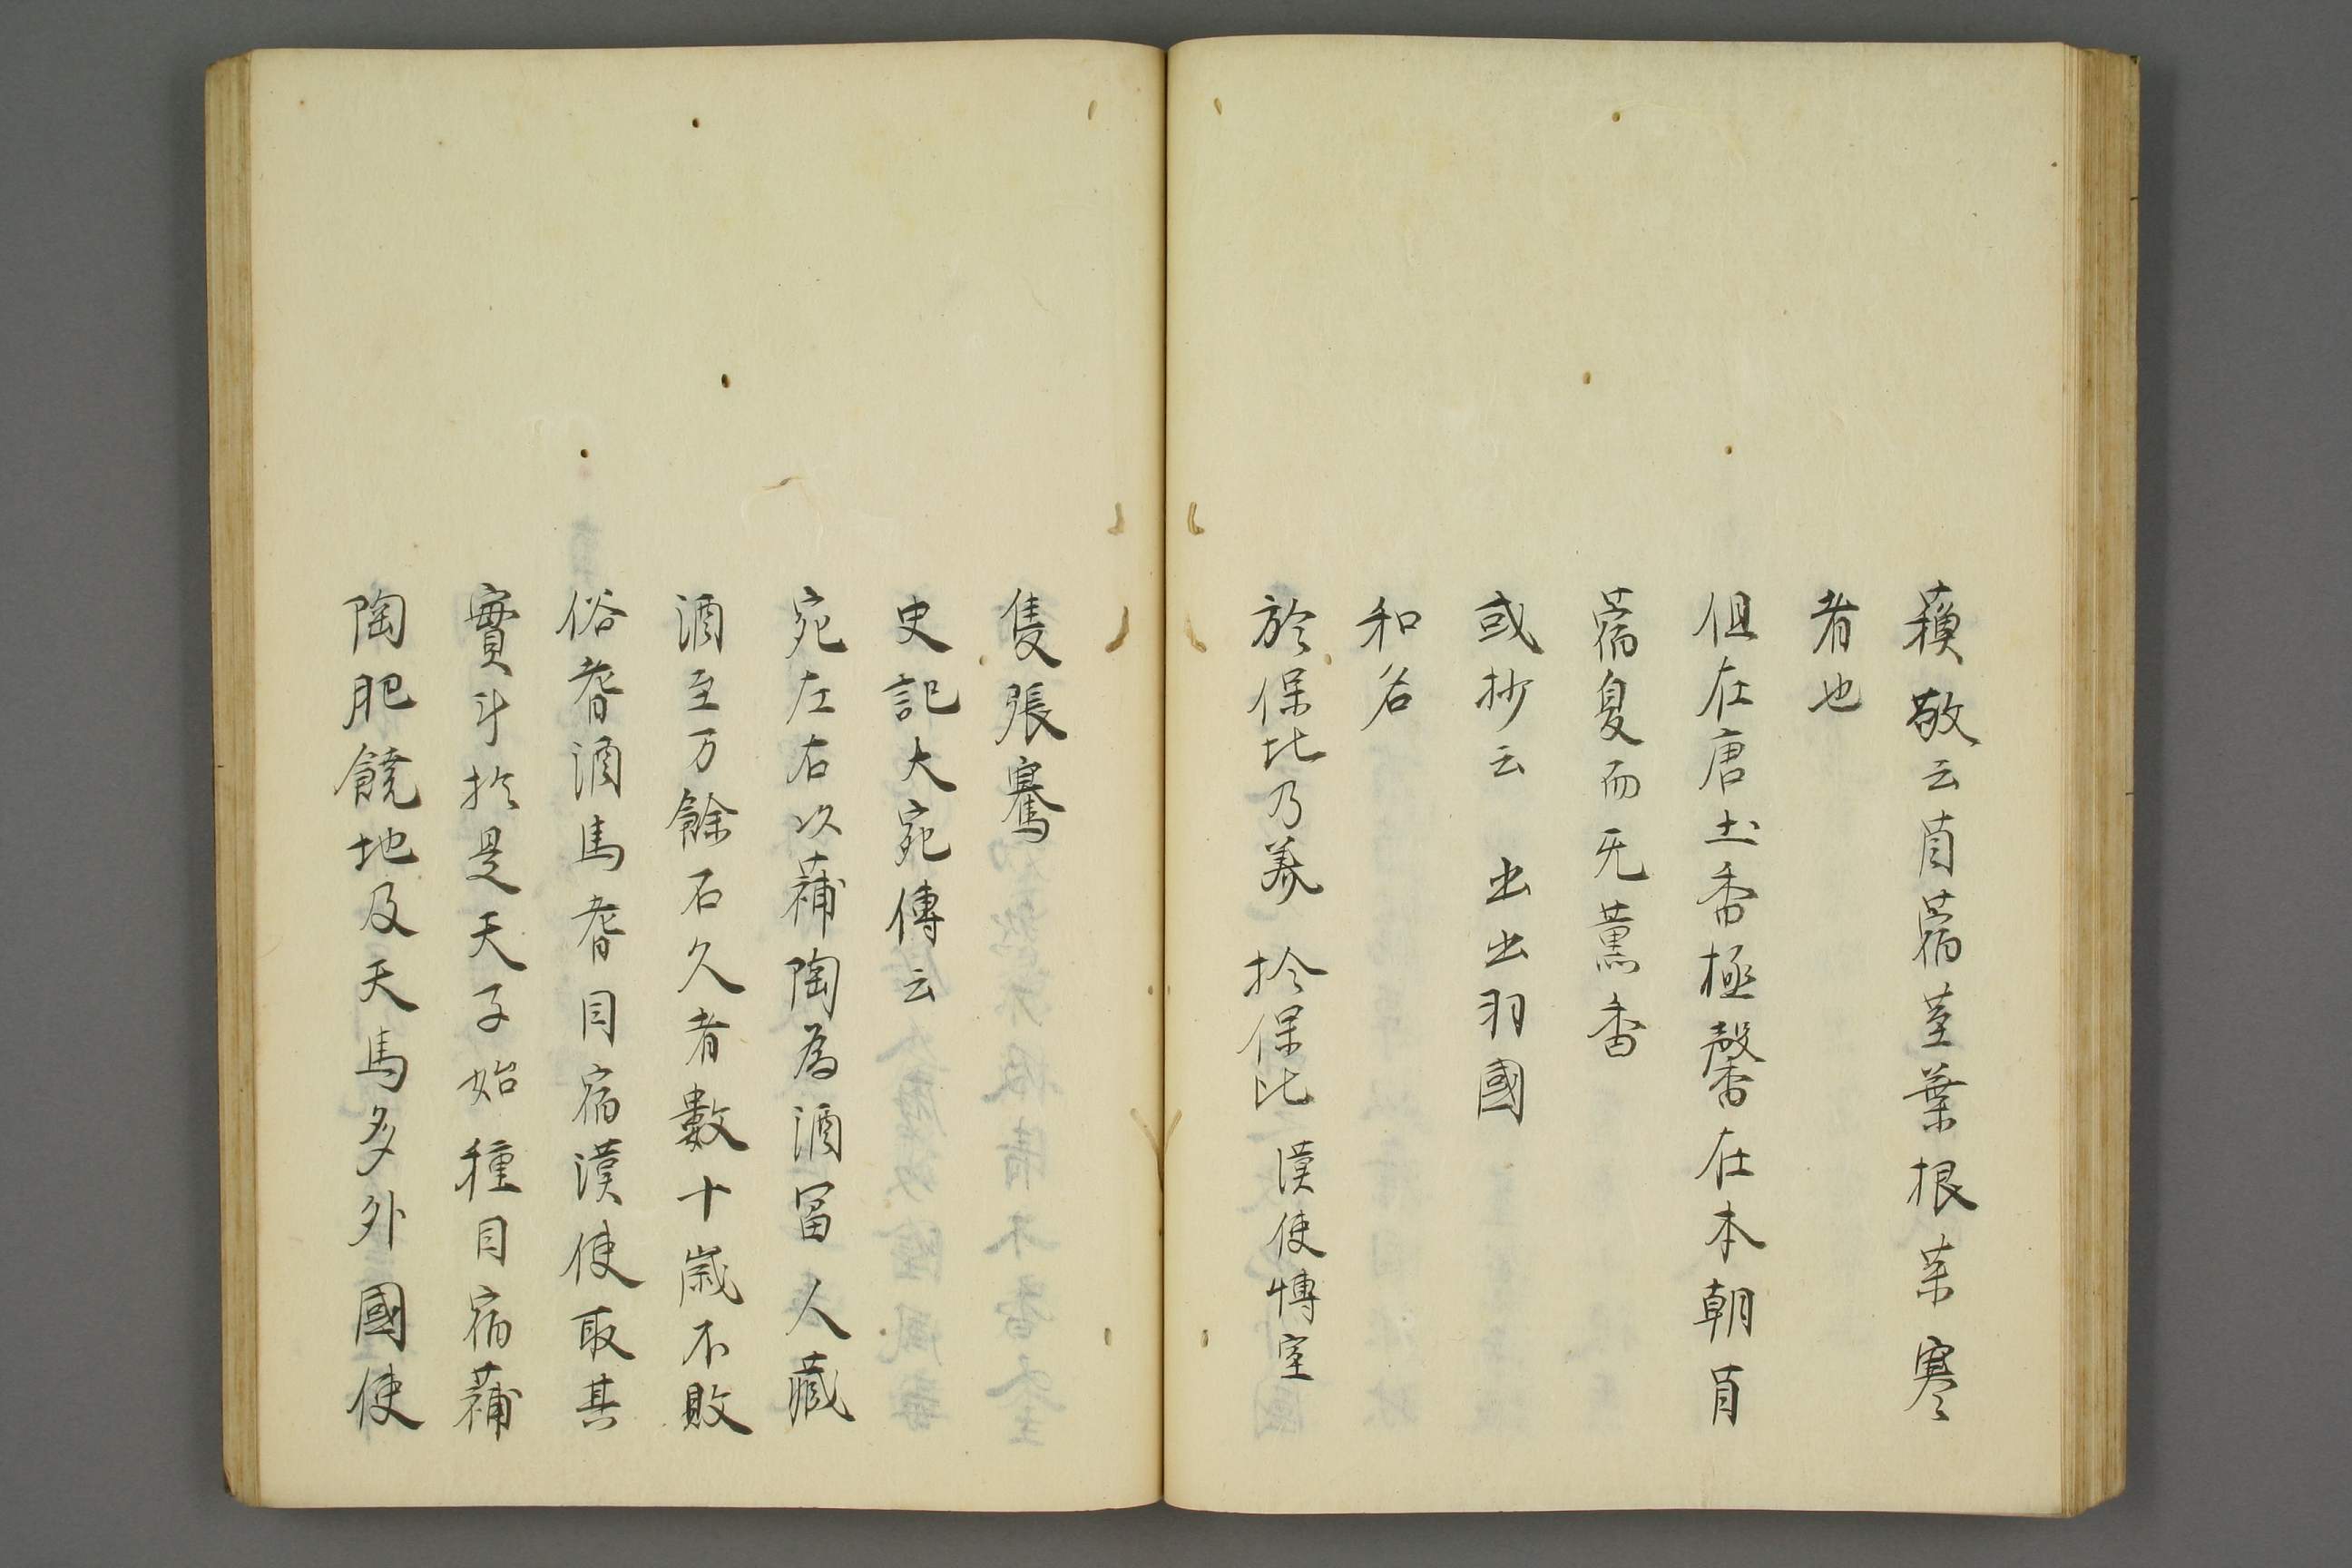 蘓敬云苜蓿莖葉根並寒
者也
但在唐土香極馨在本朝苜
蓿夏而无薫香
或抄云 出出羽國
和名
於保比乃美 於保比 漢使博室
隻張騫
史記大宛傳云
宛左右以蒱陶為酒冨人藏
酒至万餘石久者數十歳不敗
俗嗜酒馬嗜目宿漢使取其
實斗於是天子始種目宿蒱
陶肥饒地及天馬多外國使